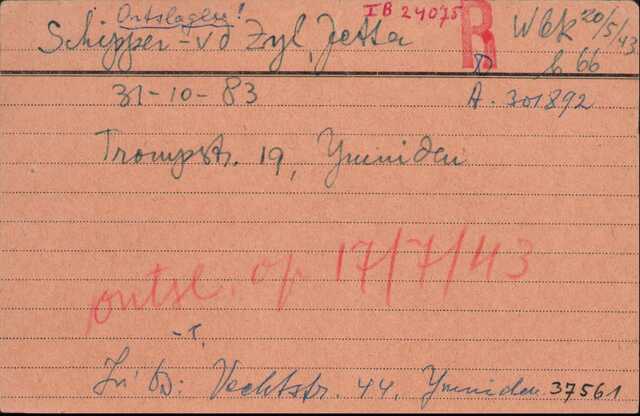 Ontslagen! IB 24075 R Wbk 20/5/43
Schipper - v d Zyl, Jetta b 66
31-10-83 A. 301892
Trompstr. 19, Ymuiden
ontsl. op 17/7/43
-T,
In B: Vechtstr. 44, Ymuiden 37561